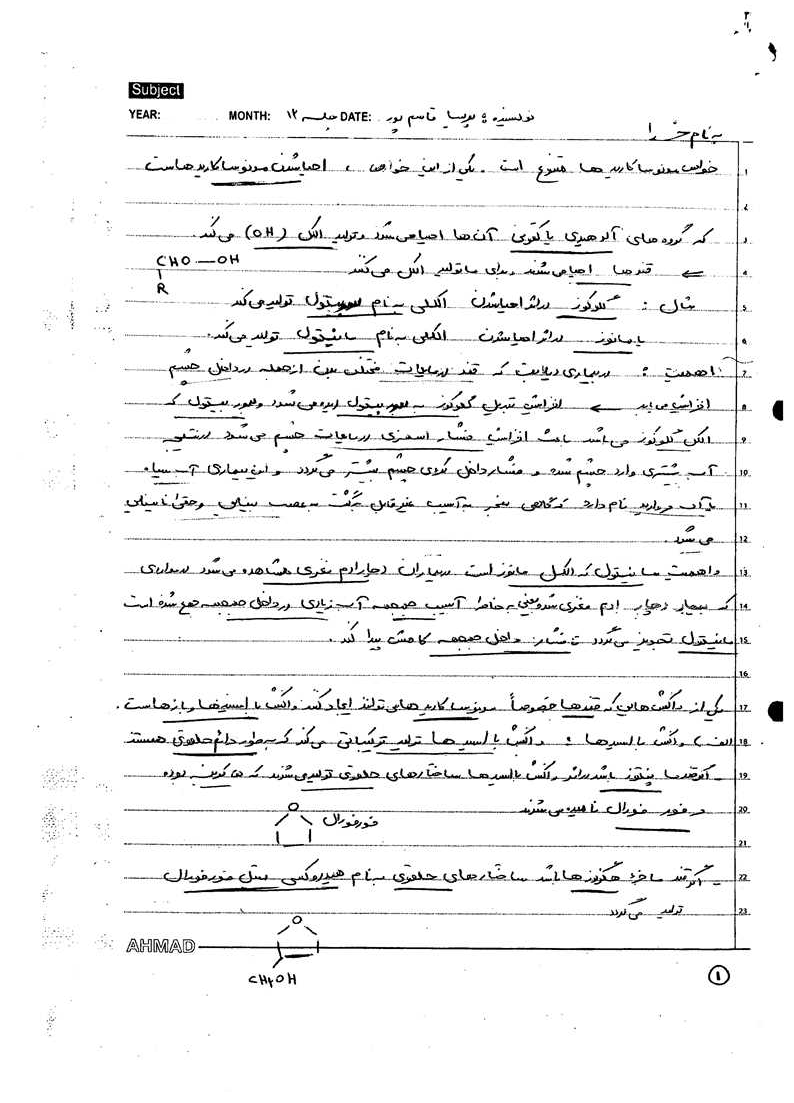 Subject
YEAR: MONTH: جلسه ۱۲ DATE: نویسنده : پریسا قاسم پور
به نام خدا
1 خواص مونوساکاریدها متنوع است . یکی از این خواص ، احیاشدن مونوساکاریدهاست
2
3 که گروه های آلدهیدی یا کتونی آن ها احیا می شود و تولید الکل (OH) می کند.
CHO—OH
4 ← قندها احیا می شوند و برای ما تولید الکل می کنند
R
5 مثال : گلوکوز در اثر احیاشدن الکلی به نام سوربیتول تولید می کند
6 یا مانوز در اثر احیاشدن الکلی به نام مانیتول تولید می کند.
7 اهمیت : در بیماری دیابت که قند در مایعات مختلف بدن از جمله در داخل چشم
8 افزایش می یابد ← افزایش تبدیل گلوکوز به سوربیتول دیده می شود و سوربیتول که
9 الکل گلوکوز می باشد باعث افزایش فشار اسمزی در مایعات چشم می شود در نتیجه
10 آب بیشتری وارد چشم شده و فشار داخل کره ی چشم بیشتر می گردد و این بیماری آب سیاه
11 یا آب مروارید نام دارد که گاهی منجر به آسیب غیرقابل برگشت به عصب بینایی و حتی نابینایی
12 می شود.
13 و اهمیت مانیتول که الکل مانوز است در بیماران دچار ادم مغزی مشاهده می شود در مواردی
14 که بیمار دچار ادم مغزی شده یعنی به خاطر آسیب جمجمه آب زیادی در داخل جمجمه جمع شده است
15 مانیتول تجویز می گردد تا فشار داخل جمجمه کاهش پیدا کند.
16
17 یکی از واکنش هایی که قندها خصوصاً مونوساکاریدها می توانند ایجاد کنند واکنش با اسیدها و بازهاست.
18 الف) واکنش با اسیدها : واکنش با اسیدها تولید ترکیباتی می کند که به طور دائم حلقوی هستند
19 - اگر قند ما پنتوز باشد در اثر واکنش با اسیدها ساختارهای حلقوی تولید می شوند که ۵ کربنه بوده
20 و فور فورال نامیده می شوند
O
فورفورال
21
22 - اگر قند ما جزء هگزوزها باشد ساختارهای حلقوی به نام هیدروکسی متیل فورفورال
23 تولید می گردد
O
AHMAD
CH۲OH
۱